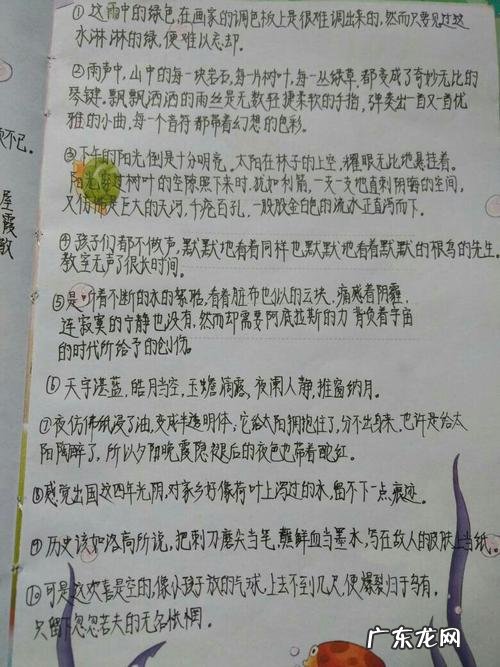 ①这雨中的绿色,在画家的调色板上是很难调出来的,然而只要见过这
水淋淋的绿,便难以忘却.
②雨声中,山中的每一块岩石,每一片树叶,每一丛绿草,都变成了奇妙无比的
琴键.飘飘洒洒的雨丝是无数轻捷柔软的手指,弹奏出一首又一首优
雅的小曲,每一个音符都带着幻想的色彩.
③下午的阳光倒是十分明亮。太阳在林子的上空,耀眼无比地悬挂着.
阳光穿过树叶的空隙照下来时,犹如利箭,一支一支地直刺阴晦的空间,
又仿佛是巨大的天河,千疮百孔,一股股金白色的流水正直泻而下.
④孩子们都不做声,默默地看着同样也默默地看着默默的根鸟的先生.
教室无声了很长时间.
⑤是听着不断的水的哀吟,看着脏布也似的云块,痛感着阴霾,
连寂寞的宁静也没有,然而却需要阿底拉斯的力背负着宇宙
的时代所给予的创伤。
⑥天宇湛蓝,皓月当空,玉蟾滴露,夜阑人静,推窗纳月.
⑦夜仿佛纸浸了油,变成半透明体;它给太阳拥抱住了,分不出身来,也许是给太
阳陶醉了,所以夕阳晚霞隐褪后的夜色也带着酡红.
⑧感觉出国这四年光阴,对家乡好像荷叶上泻过的水,留不下一点痕迹.
⑨历史该如洛高所说,把刺刀磨尖当笔,蘸鲜血当墨水,写在敌人的皮肤上当纸.
⑩可是这欢喜是空的,像小孩子放的气球,上去不到几尺,便爆裂归于乌有,
只留下忽忽若失的无名怅惘.
不已.
屋
霞
散
广东龙网